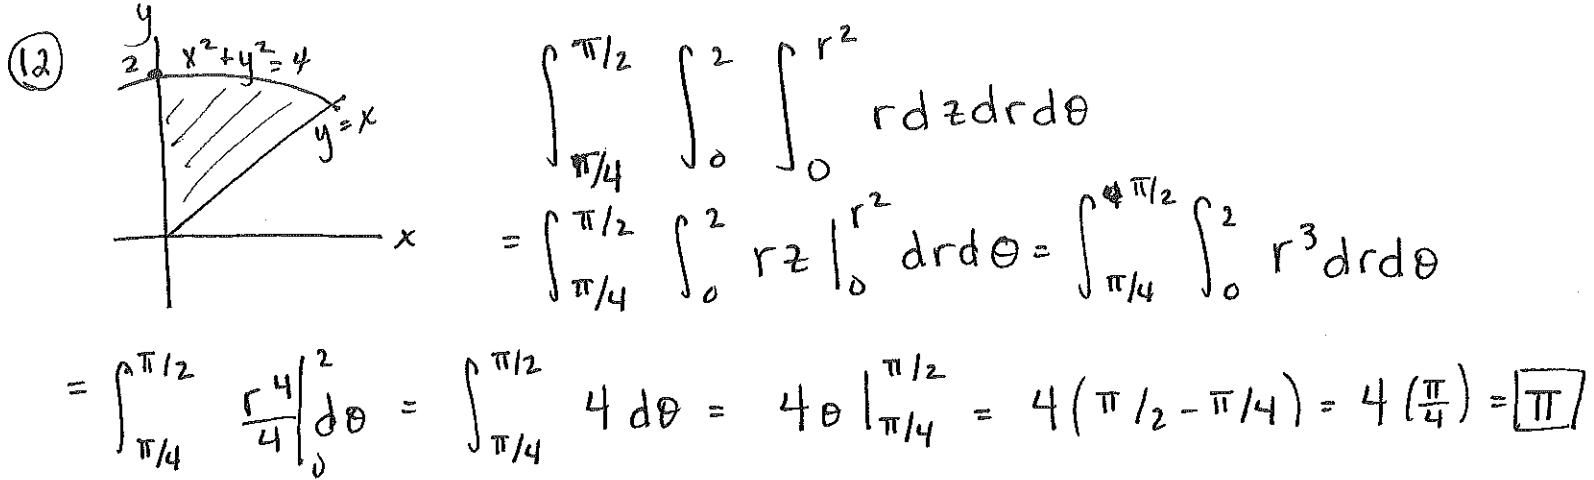 (12)
y
2 x²+y²=4
y=x
x
∫_{π/4}^{π/2} ∫_0^2 ∫_0^{r²} r dz dr dθ
= ∫_{π/4}^{π/2} ∫_0^2 rz |_0^{r²} dr dθ = ∫_{π/4}^{π/2} ∫_0^2 r³ dr dθ
= ∫_{π/4}^{π/2} r⁴/4 |_0^2 dθ = ∫_{π/4}^{π/2} 4 dθ = 4θ |_{π/4}^{π/2} = 4(π/2 - π/4) = 4(π/4) = π